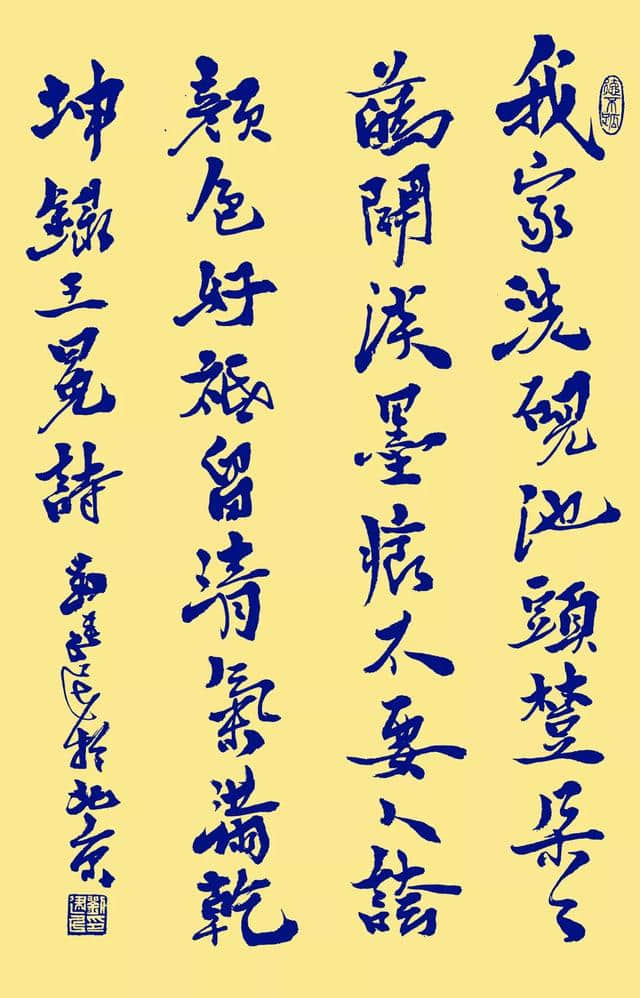 我家洗硯池頭樹朵々
蘤開淡墨痕不要人誇
顏色好祗留清氣滿乾
坤錄王冕詩 劉於北京